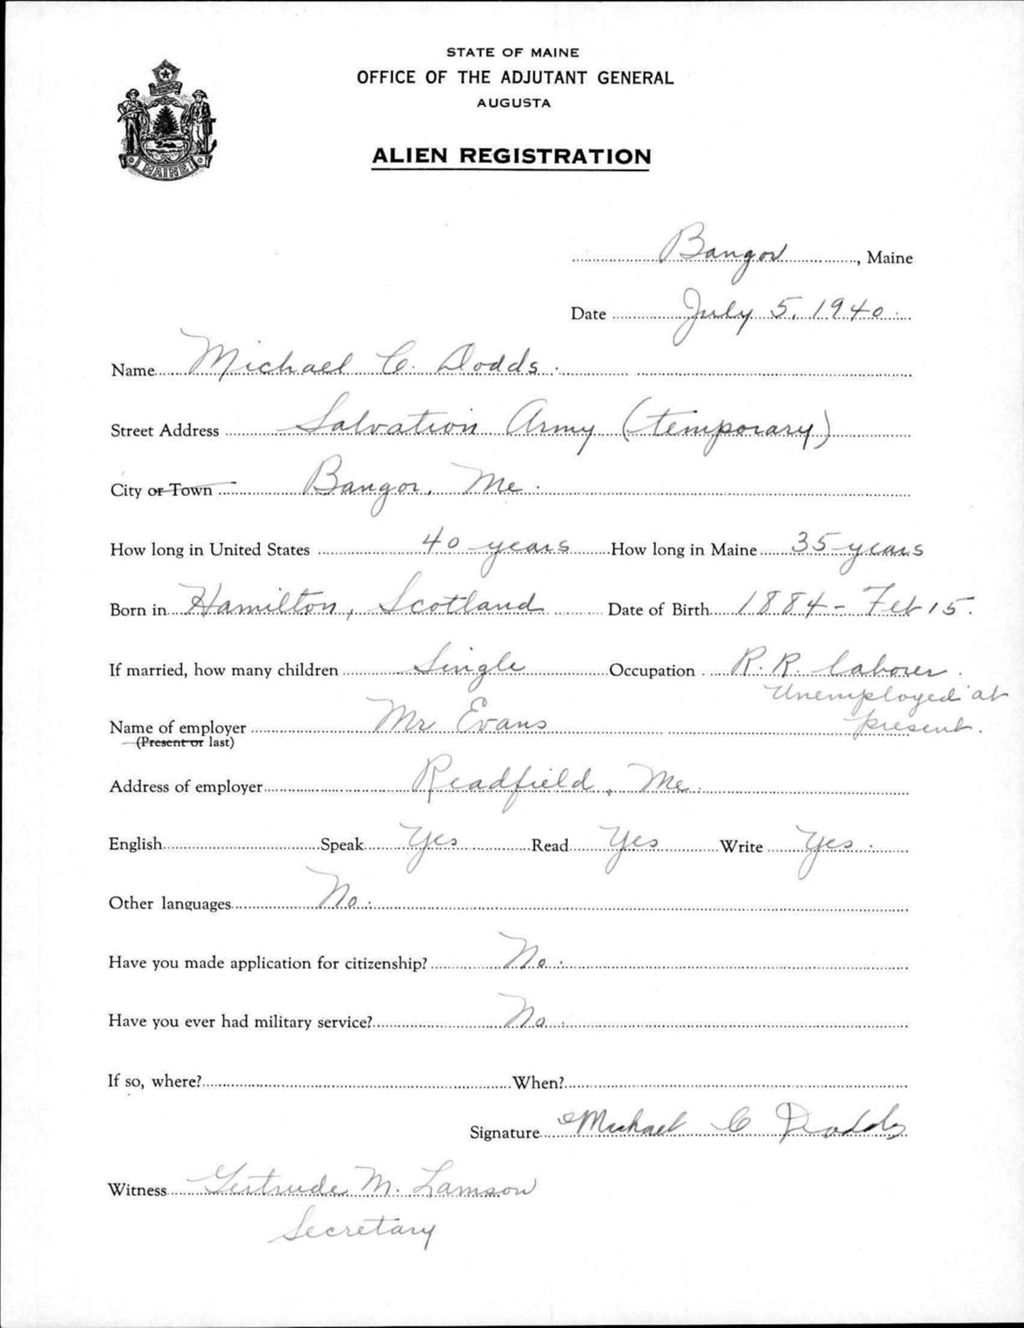 STATE OF MAINE
OFFICE OF THE ADJUTANT GENERAL
AUGUSTA
ALIEN REGISTRATION
MAINE
Bangor, Maine
Date July 5, 1940.
Name Michael C. Dodds.
Street Address Salvation Army (temporary)
City or Town Bangor, Me.
How long in United States 40 years How long in Maine 35 years
Born in Hamilton, Scotland Date of Birth 1884 - Feb 15.
If married, how many children Single Occupation R. R. laborer.
Unemployed at
Name of employer Mr Evans present.
(Present or last)
Address of employer Readfield, Me.
English Speak Yes Read Yes Write Yes.
Other languages No.
Have you made application for citizenship? No.
Have you ever had military service? No.
If so, where? When?
Signature Michael C Dodds
Witness Gertrude M. Lamson
Secretary